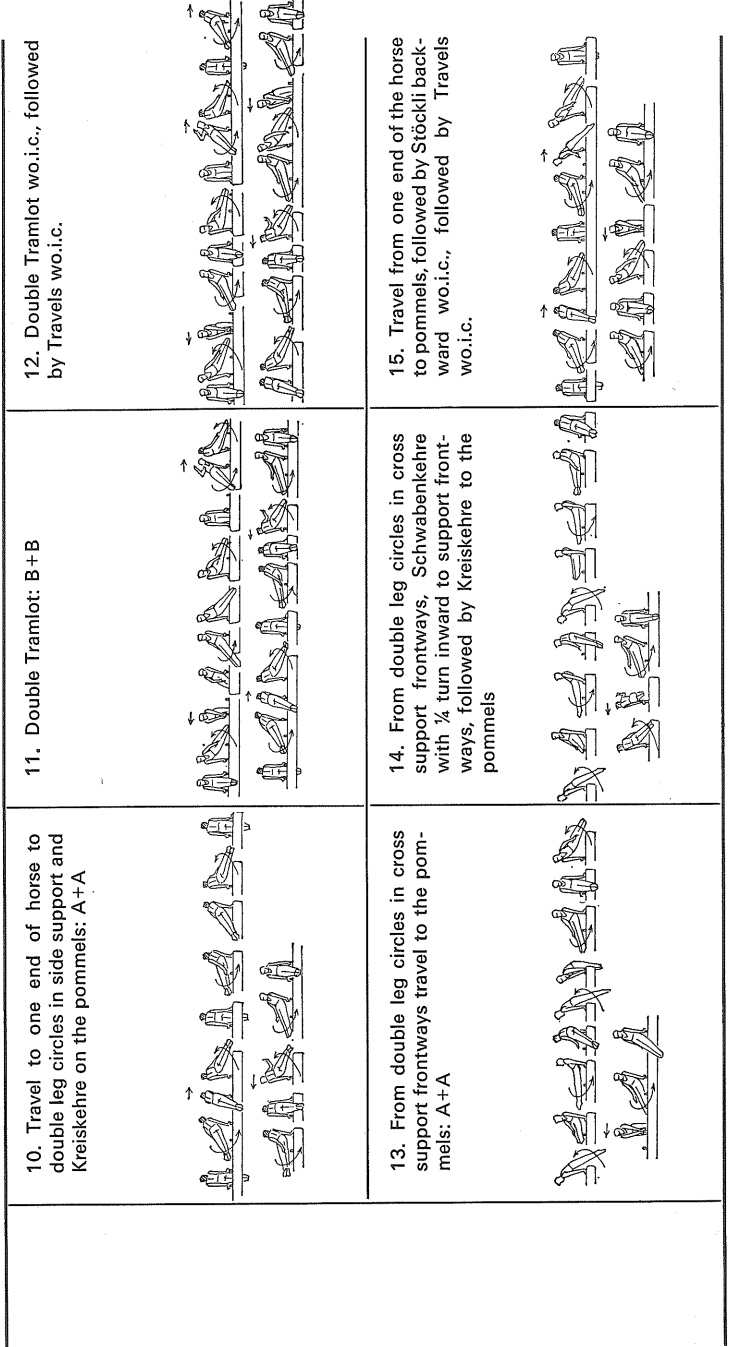 10. Travel to one end of horse to
double leg circles in side support and
Kreiskehre on the pommels: A+A
11. Double Tramlot: B+B
12. Double Tramlot wo.i.c., followed
by Travels wo.i.c.
13. From double leg circles in cross
support frontways travel to the pom-
mels: A+A
14. From double leg circles in cross
support frontways, Schwabenkehre
with ¼ turn inward to support front-
ways, followed by Kreiskehre to the
pommels
15. Travel from one end of the horse
to pommels, followed by Stöckli back-
ward wo.i.c., followed by Travels
wo.i.c.